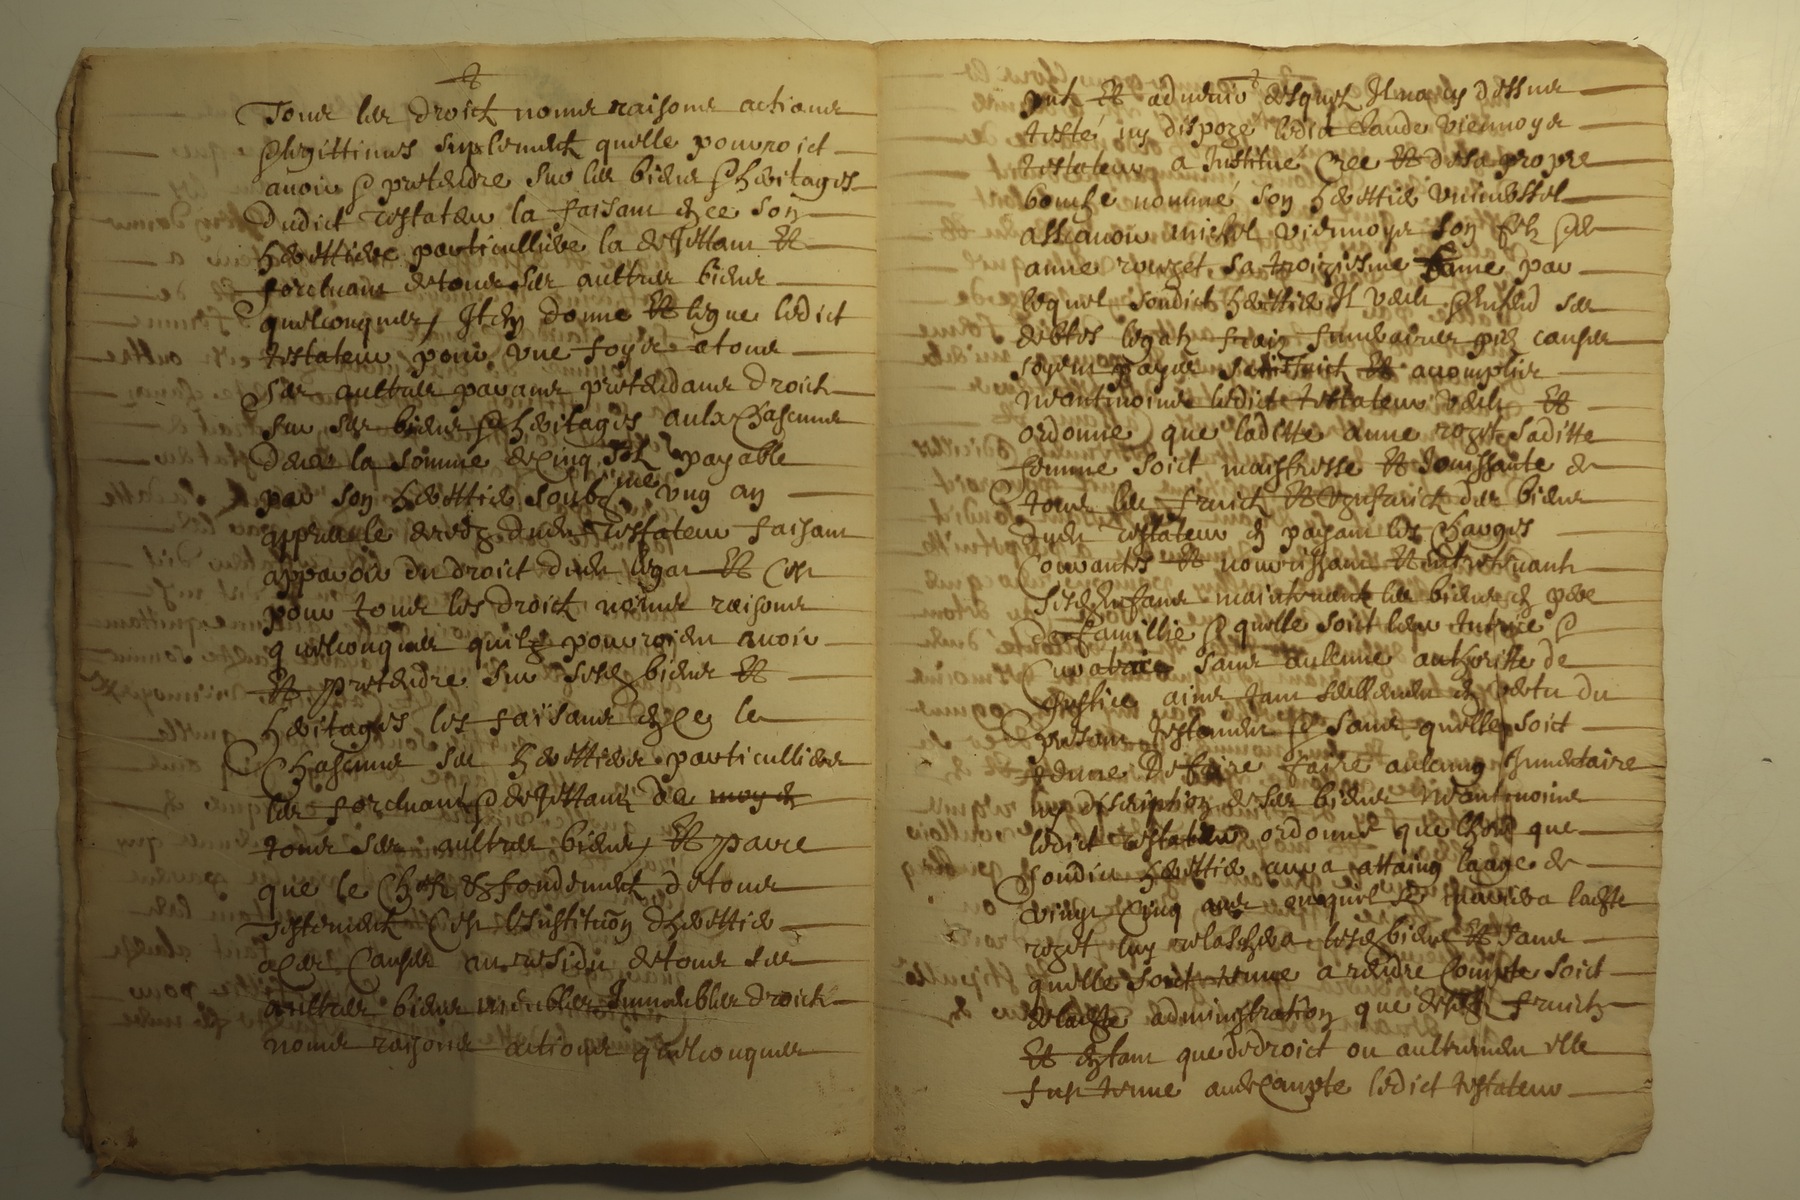 Tous les droictz noms raisons actions
& legittimes suplementz quelle pouvroict
avoir & pretendre sur les biens & heritages
dudict testateur la faisant en ce son
herittiere particulliere la dejettant et
forcluant de tous ses aultres biens
quelconques, Item donne et legue ledict
testateur pour une foys a tous
ses aultres parans pretendans droict
sur ses biens & heritages aulx chascuns
deux la somme de cinq solz payable
par son herittier soubz ung an
appres le deced dudit testateur faisant
apparoir du droict dudit legat et cest
pour tous les droictz noms raisons
quelconques quilz pouvroient avoir
et pretendre sur sesd biens et
heritages les faisans en ce le
chascuns ses herittiers particulliers
les forcluant & dejettant de
tous ses aultres biens, et parce
que le chefz & fondement de tous
testementz cest linstituon dherittier
a ces causes au residu de tous ses
aultres biens meubles immeubles droictz
noms raisons actions quelconques
pntz et advenir desquelz il na cy dessus
testé ny dispozé ledict Claude Viennoys
testateur a institué cree et de sa propre
bouche nommé son herittier universel
assavoir michel viennoys son filz & de
anne rouzet sa troiziesme femme par
lequel sondict herittier il veult & entend ses
debtes legatz fraiz funeraires piez causes
soyent payes satisfaict et acomplir
neantmoins ledict testateur veult et
ordonne que laditte anne rozet saditte
femme soict maistresse et jouissante de
tous les fruictz et uzufruictz des biens
dudit testateur en paisant les charges
couvantes et nourrissant et entretenant
sesd enfans maintenant les biens en pere
de famillie & quelle soit leur tutrice &
curatrice sans aulcune authoritte de
justice ains tant seullement en vertu du
present testament & sans quelle soit
tenue de faire faire aulcung inventaire
ny description de ses biens neantmoins
ledict testateur ordonne que lhors que
sondit herittier aura attaing laage de
vingt cinq ans laditte
rozet luy relaschera lesd biens et sans
quelle soit tenue a rendre compte soict
de laditte administration que desditz fruictz
et en tant que de droict ou aultrement elle
fust tenue audit compte ledict testateur